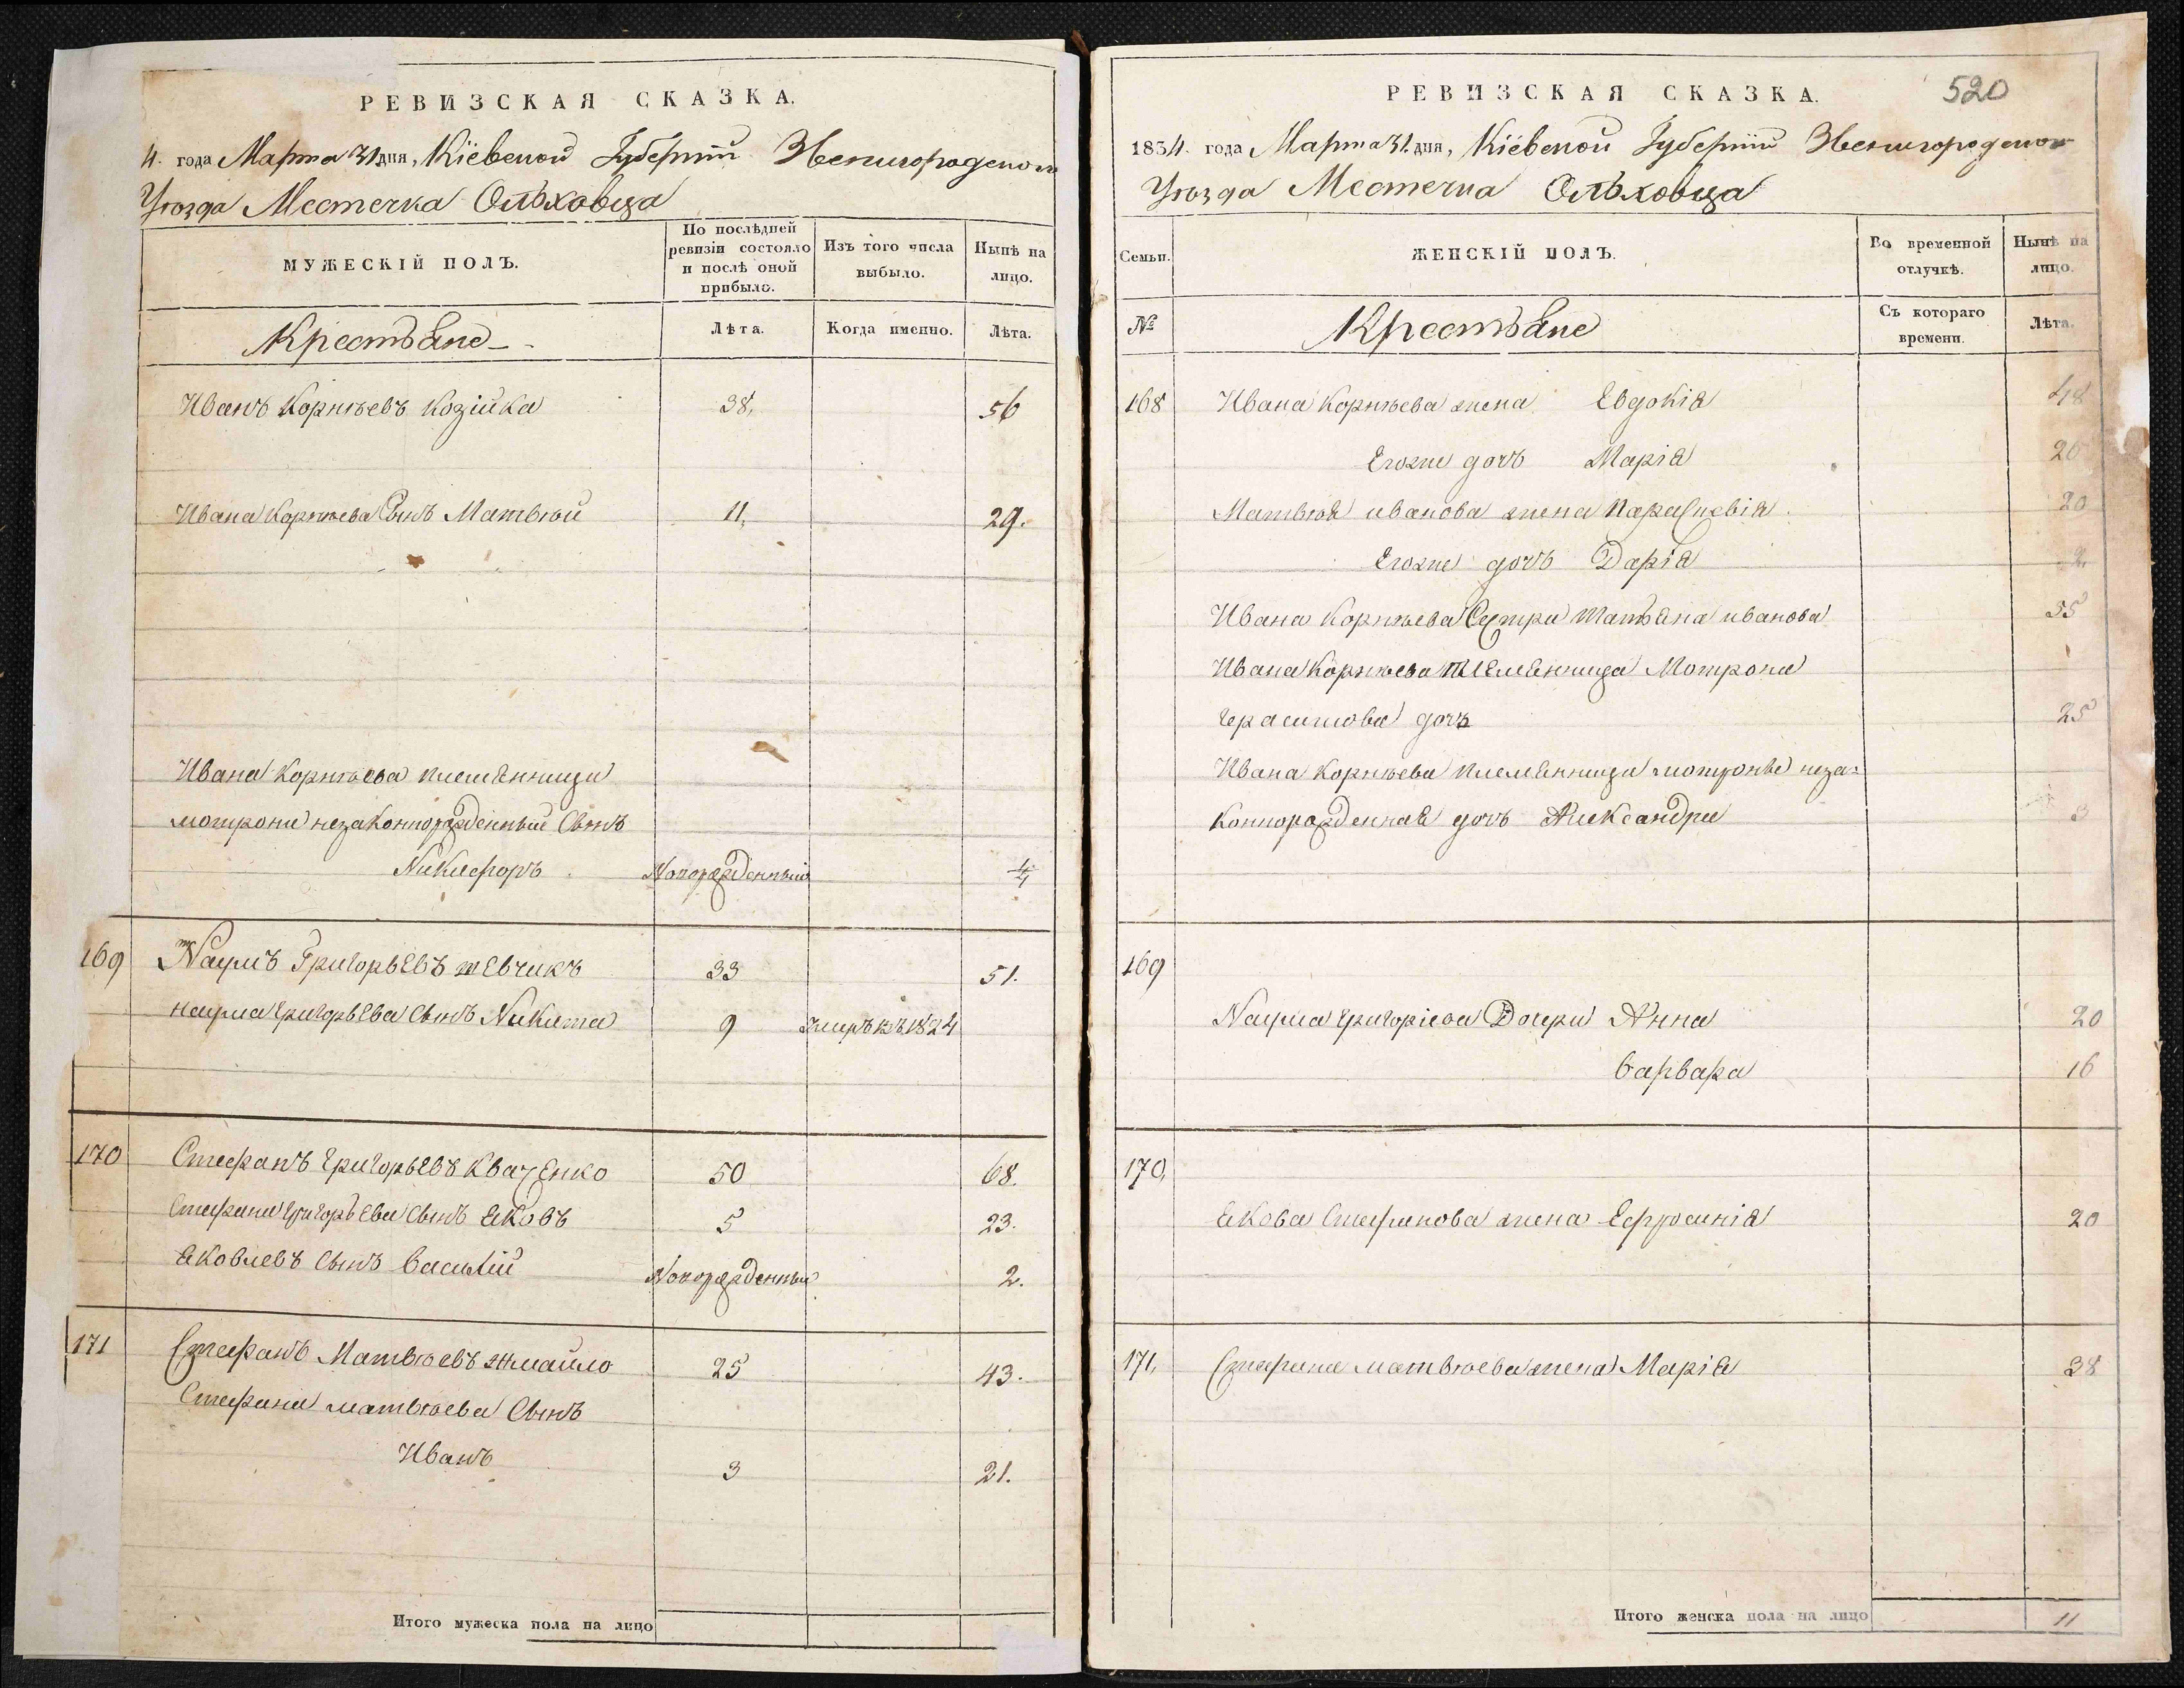 РЕВИЗСКАЯ СКАЗКА.
4. года Марта 31 дня, Кіевской Губерніи Звенигородского
Уѣзда Местечка Ольховца
МУЖЕСКІЙ ПОЛЪ.
По послѣдней ревизіи состояло и послѣ оной прибыло.
Изъ того числа выбыло.
Нынѣ на лицо.
Крестьяне
Лѣта.
Когда именно.
Лѣта.
Иванъ Корнѣевъ Козійка 38, 56
Ивана Корнѣева Сынъ Матвѣй 11, 29.
Ивана Корнѣева племянници
мотрони незаконнорожденный Сынъ
Никифоръ Новорожденный
169 Наумъ Григорьевъ шевчикъ 33 51.
наума григорьева Сынъ Никита 9 1824
170 Стефанъ григорьевъ Кваченко 50 68.
Стефана григорьева Сынъ Яковъ 5 23.
Яковлевъ Сынъ Василій Новорожденный 2.
171 Стефанъ Матвѣевъ жмайло 25 43.
Стефана матвѣева Сынъ
Иванъ 3 21.
Итого мужеска пола на лицо
РЕВИЗСКАЯ СКАЗКА.
520
1834. года Марта 31. дня, Кіевской Губерніи Звенигородского
Уѣзда Местечка Ольховца
Семьи.
ЖЕНСКІЙ ПОЛЪ.
Во временной отлучкѣ.
Нынѣ на лицо.
№
Крестьяне
Съ котораго времени.
Лѣта.
168 Ивана Корнѣева жена Евдокія 48
Егоже дочъ Марія 20
Матвѣя иванова жена Параскевія 20
Егоже дочъ Дарія 2
Ивана Корнѣева Сестра Татьяна иванова 55
Ивана Корнѣева племянница Мотрона
герасимова дочъ 25
Ивана Корнѣева племянници мотроны неза-
Коннорожденная дочъ Александра 3
169
Наума григоріева Дочери Анна 20
Варвара 16
170,
Якова Стефанова жена Ефросинія 20
171, Стефана матвѣева жена Марія 38
Итого женска пола на лицо 11